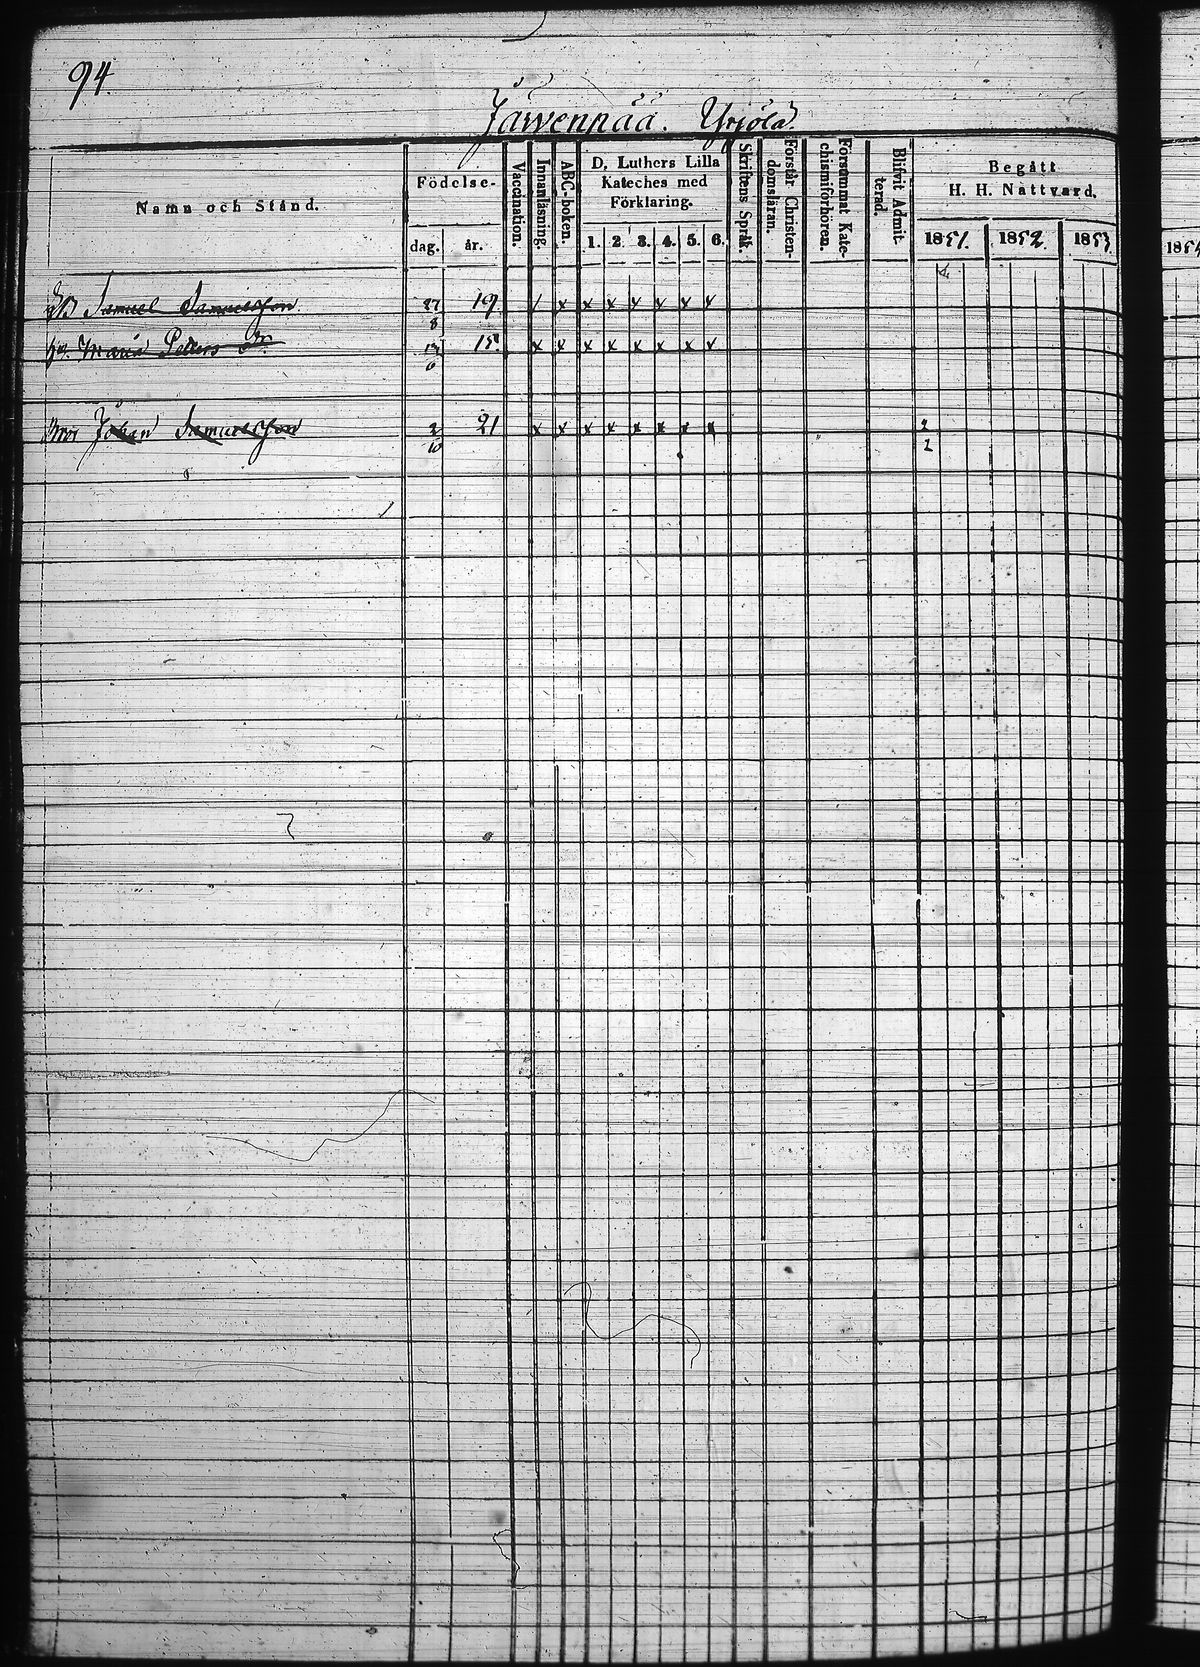 94
Järvenpää. Yrjölä.
Namn och Stånd.
Födelse-
dag. år.
Vaccination.
Innanläsning.
ABC-boken.
D. Luthers Lilla
Kateches med
Förklaring.
1. 2. 3. 4. 5. 6.
Skriftens Språk.
Förstår Christen-
domsläran.
Försummat Kate-
chismiförhören.
Blifvit Admit-
terad.
Begått
H. H. Nattvard.
1851. 1852. 1853 1854
Samuel Samuelsson 27 19 / x x x x x x x
8
Maria Peters 15 x x x x x x x x
6
Bror Johan Samuelsson 2 21 x x x x x x x x 2
10 2